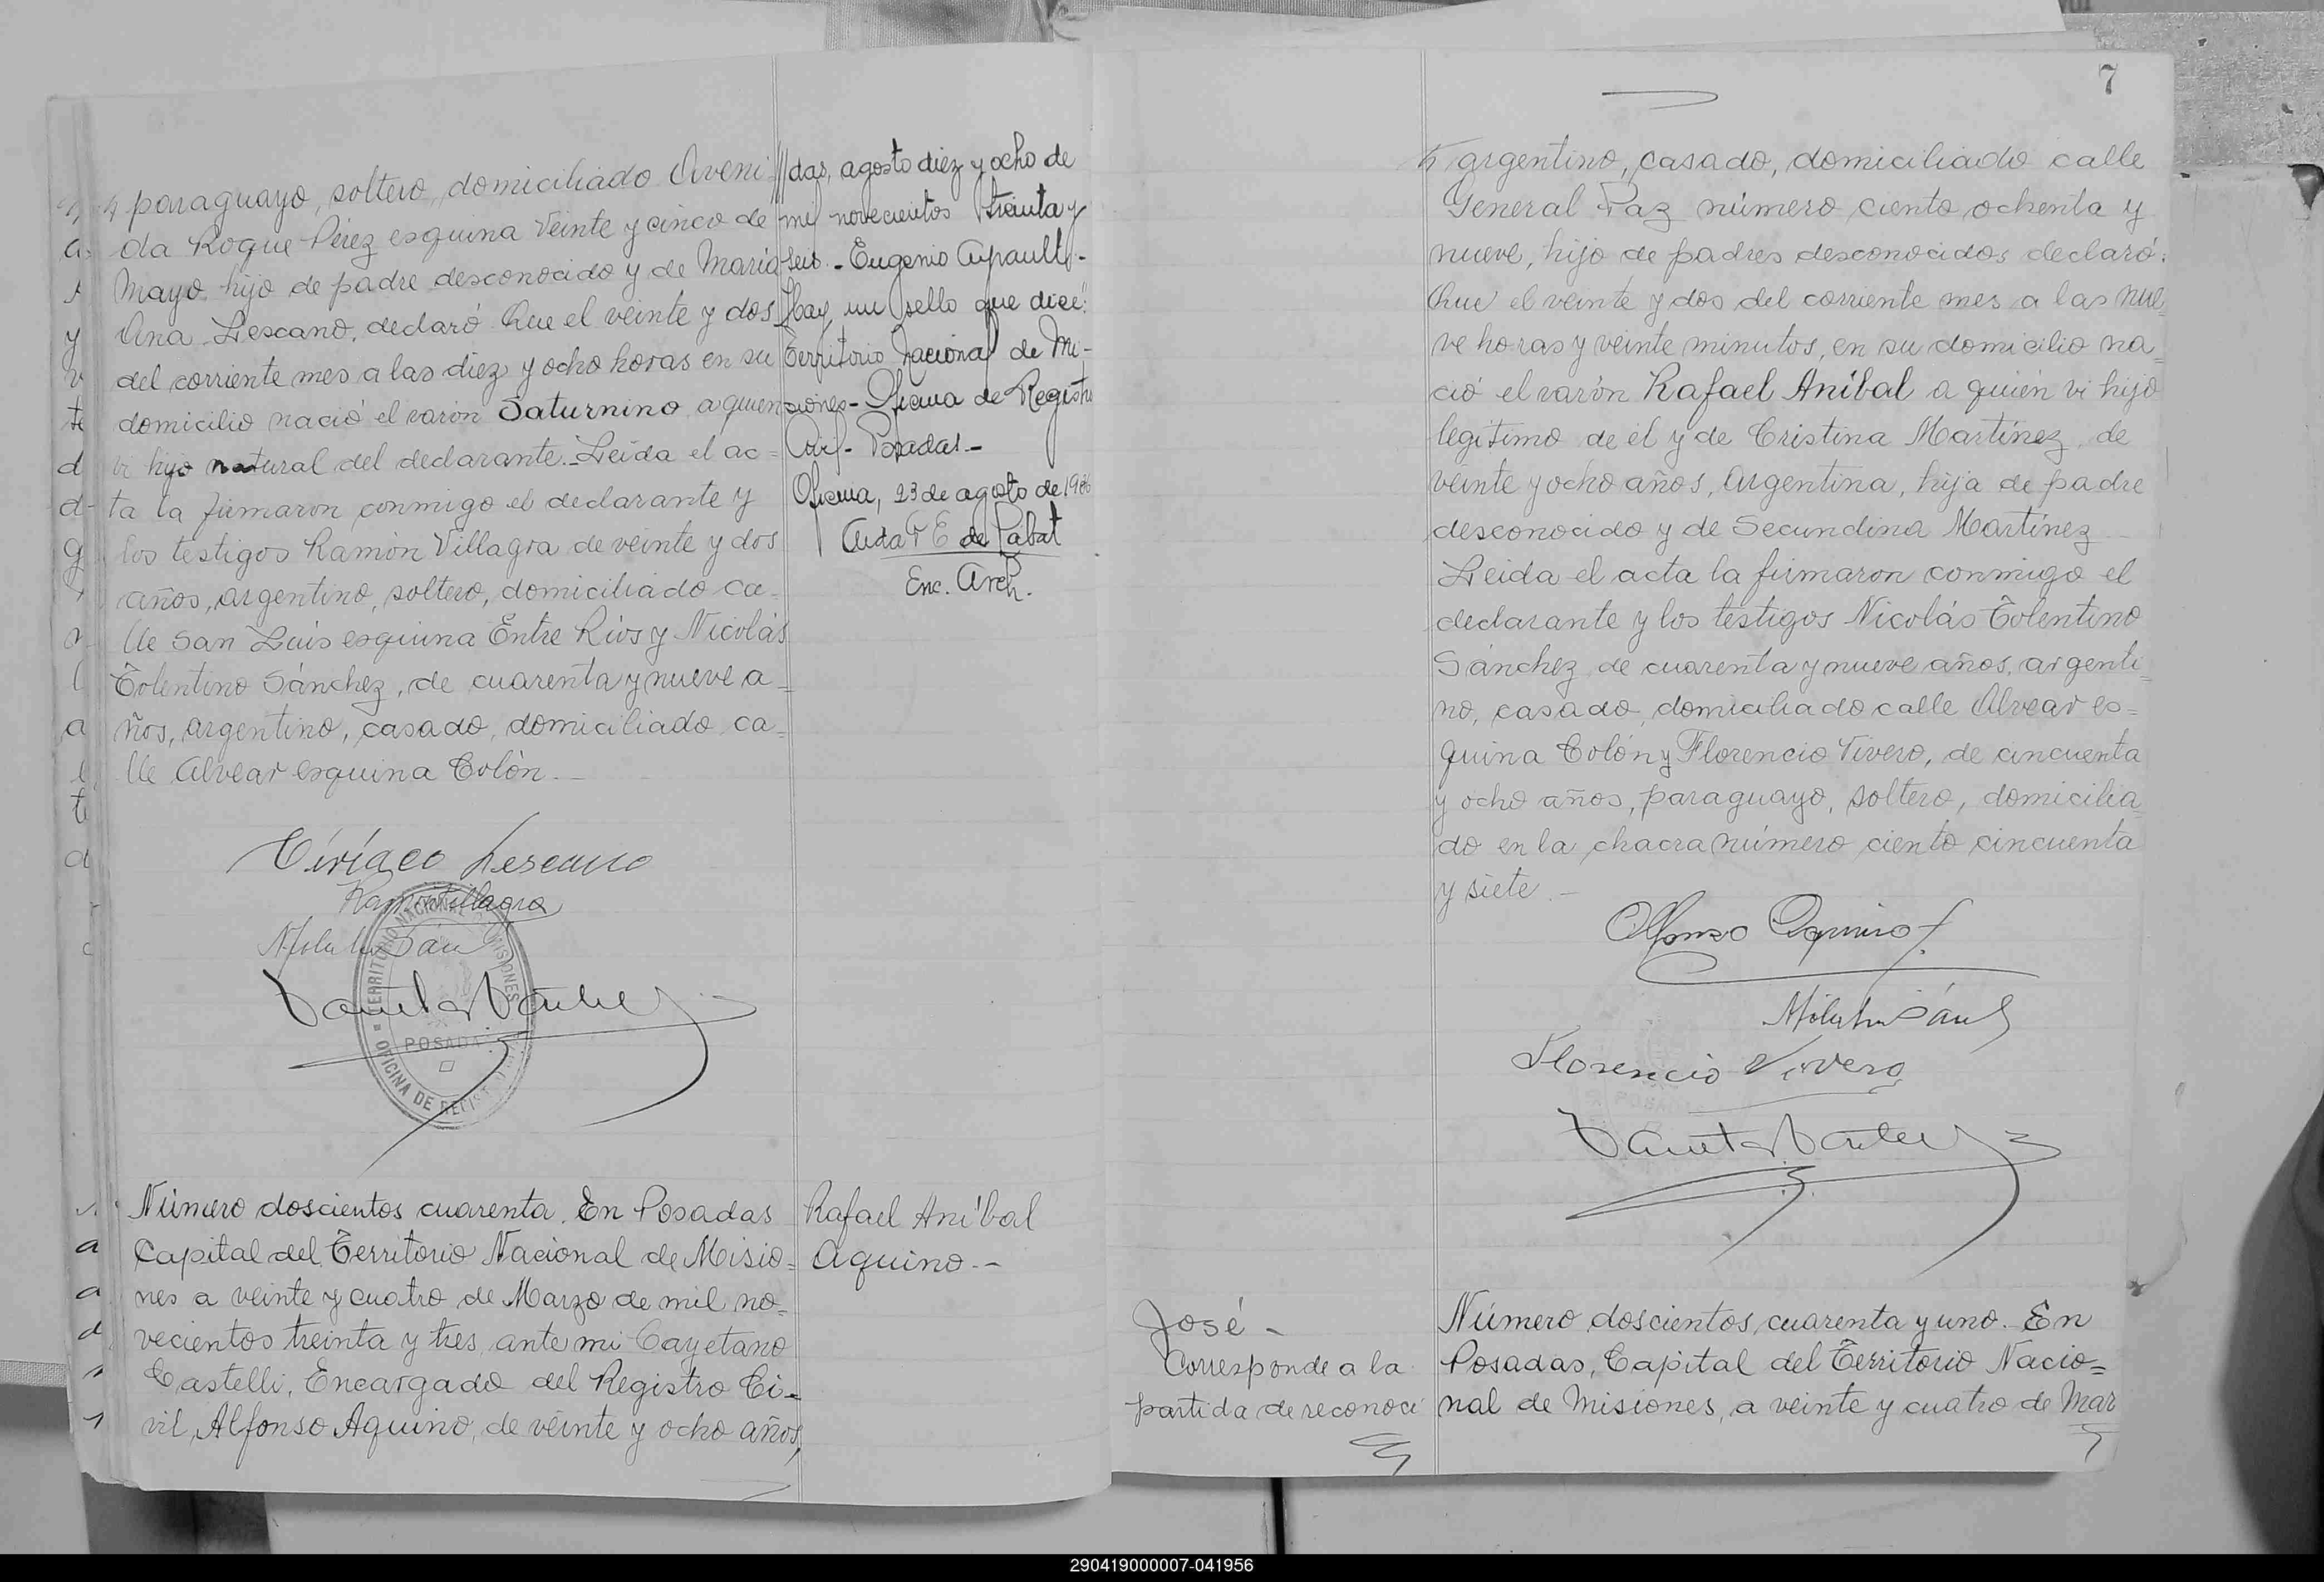 paraguayo, soltero, domiciliado Aveni
da Roque Pérez esquina Veinte y cinco de
Mayo, hijo de padre desconocido y de María
Ana Lescano, declaró: Que el veinte y dos
del corriente mes a las diez y ocho horas en su
domicilio nació el varón Saturnino a quien
vi hijo natural del declarante.- Leida el ac=
ta la firmaron conmigo el declarante y
los testigos Ramón Villagra de veinte y dos
años, argentino, soltero, domiciliado ca-
lle San Luis esquina Entre Ríos y Nicolás
Tolentino Sánchez, de cuarenta y nueve a=
ños, argentino, casado, domiciliado ca=
lle Alvear esquina Colón.-
Ciríaco Lescano
Ramón Villagra
TERRITORIO NACIONAL DE MISIONES
POSADAS
OFICINA DE REGISTRO
//das, agosto diez y ocho de
mil novecientos treinta y
seis.- Eugenio
Hay un sello que dice:
Territorio Nacional de Mi-
siones- Oficina de Registro
Civil- Posadas.-
Oficina, 23 de agosto de 1986
de Pabat
Enc. Arch.
Número doscientos cuarenta. En Posadas
Capital del Territorio Nacional de Misio=
nes a veinte y cuatro de Marzo de mil no=
vecientos treinta y tres, ante mi Cayetano
Castelli, Encargado del Registro Ci=
vil, Alfonso Aquino, de veinte y ocho años,
Rafael Aníbal
Aquino.-
7
argentino, casado, domiciliado calle
General Paz número ciento ochenta y
nueve, hijo de padres desconocidos declaró:
Que el veinte y dos del corriente mes a las nue
ve horas y veinte minutos, en su domicilio na=
ció el varón Rafael Aníbal a quién vi hijo
legítimo de él y de Cristina Martínez, de
veinte y ocho años, Argentina, hija de padre
desconocido y de Secundina Martínez
Leida el acta la firmaron conmigo el
declarante y los testigos Nicolás Tolentino
Sánchez de cuarenta y nueve años, argenti
no, casado, domiciliado calle Alvear es=
quina Colón y Florencio Vivero, de cincuenta
y ocho años, paraguayo, soltero, domicilia
do en la chacra número ciento cincuenta
y siete.-
Alfonso Aquino
Florencio Vivero
José -
Corresponde a la
partida de reconoci
Número doscientos cuarenta y uno. En
Posadas, Capital del Territorio Nacio=
nal de Misiones, a veinte y cuatro de Mar
290419000007-041956